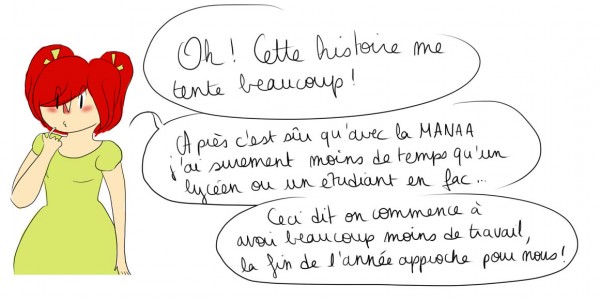 Oh! Cette histoire me
tente beaucoup!
Après c'est sûr qu'avec la MANAA
j'ai surement moins de temps qu'un
lycéen ou un etudiant en fac...
Ceci dit on commence à
avoir beaucoup moins de travail,
la fin de l'année approche pour nous!